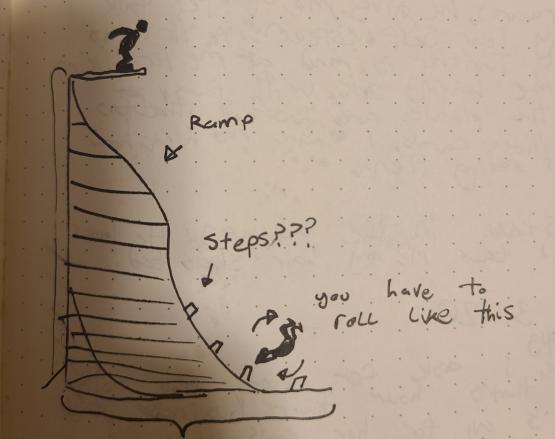 Ramp
Steps???
you have to
roll like this